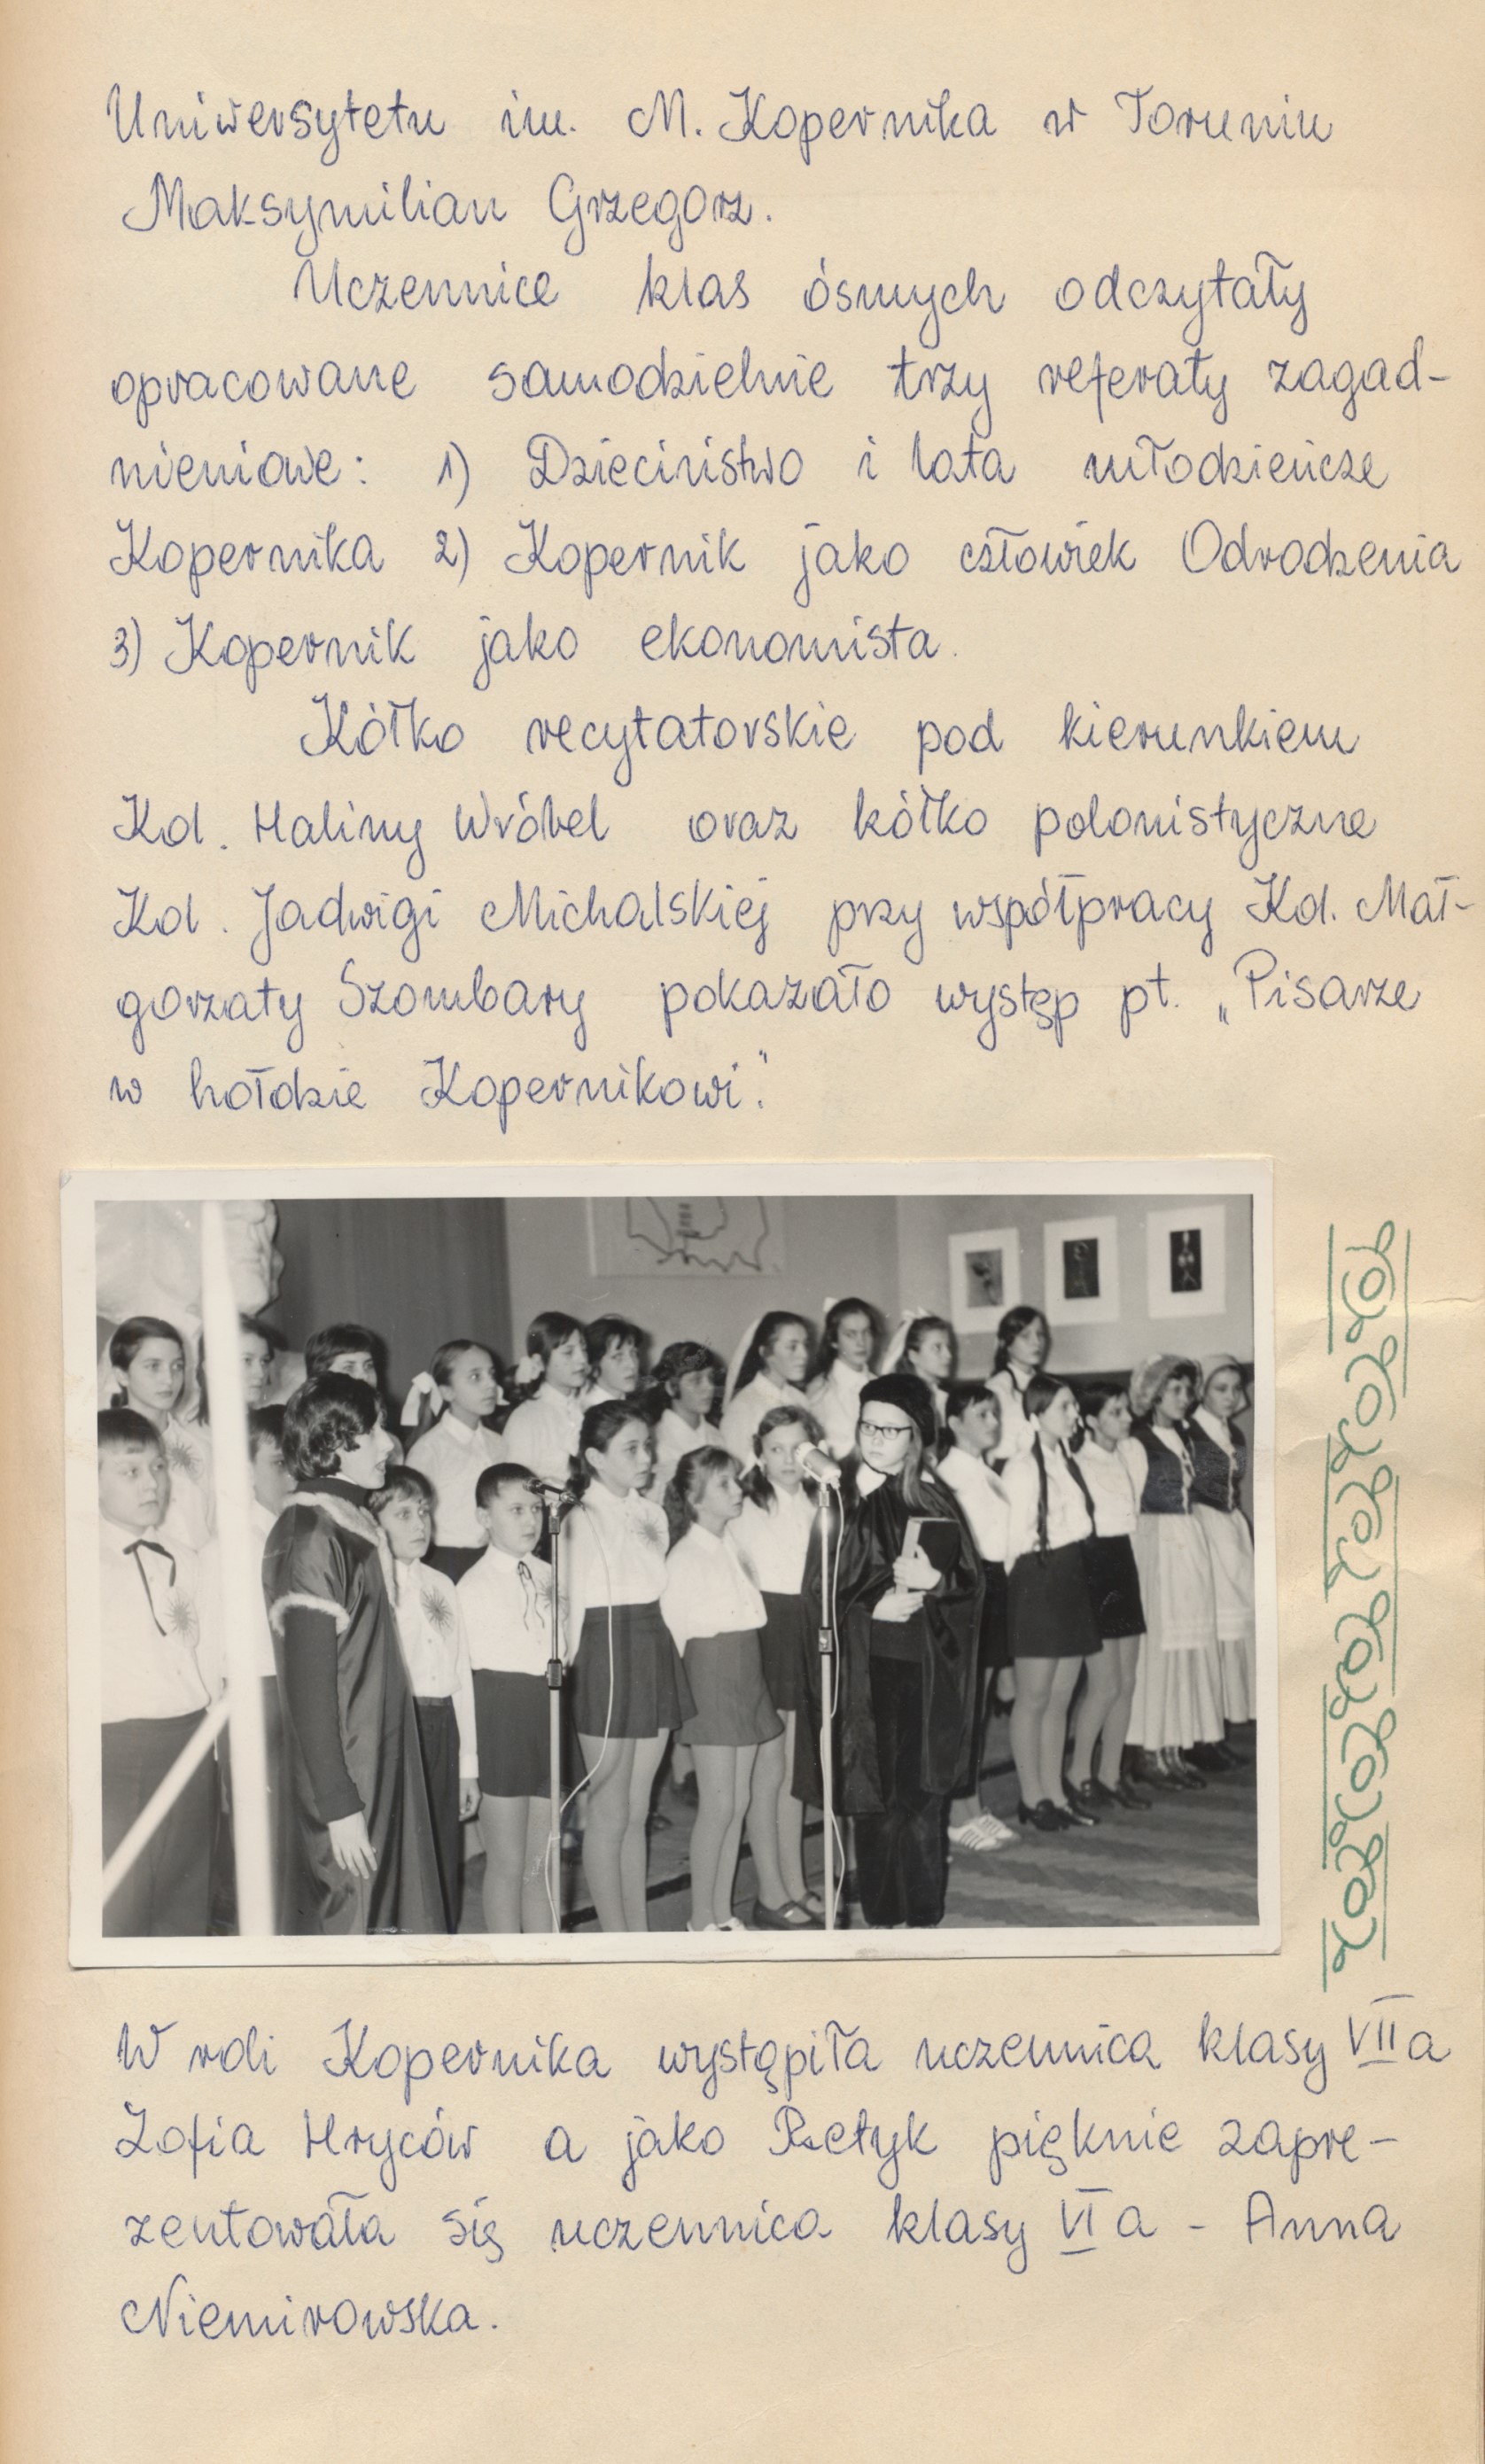 Uniwersytetu im. M. Kopernika w Toruniu
Maksymilian Grzegorz.
Uczennice klas ósmych odczytały
opracowane samodzielnie trzy referaty zagad-
nieniowe: 1) Dzieciństwo i lata młodzieńcze
Kopernika 2) Kopernik jako człowiek Odrodzenia
3) Kopernik jako ekonomista.
Kółko recytatorskie pod kierunkiem
Kol. Haliny Wróbel oraz kółko polonistyczne
Kol. Jadwigi Michalskiej przy współpracy Kol. Mał-
gorzaty Szombary pokazało występ pt. „Pisarze
w hołdzie Kopernikowi".
W roli Kopernika wystąpiła uczennica klasy VII a
Zofia Hryców a jako Retyk pięknie zapre-
zentowała się uczennica klasy VI a - Anna
Niemirowska.